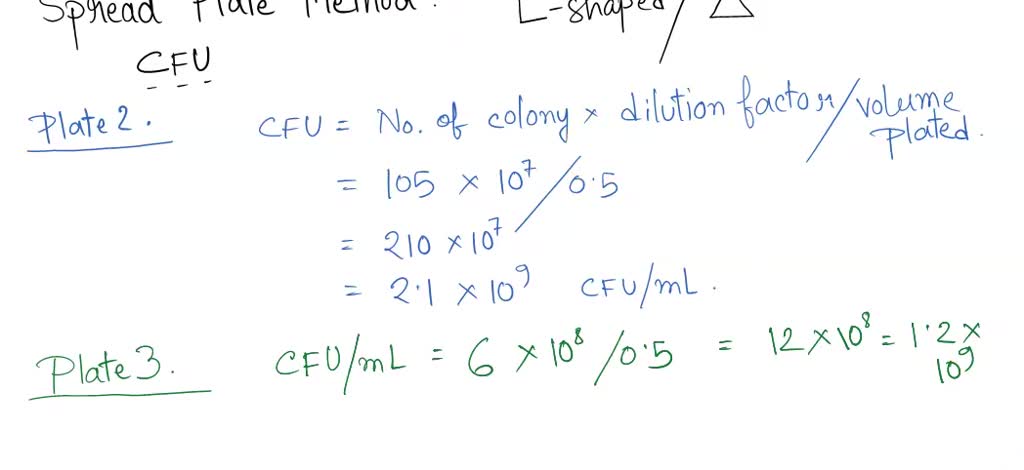 Spread Plate Method: L-shaped/△
CFU
Plate 2. CFU = No. of colony × dilution factor/volume plated.
= 105 × 10⁷/0.5
= 210 × 10⁷
= 2.1 × 10⁹ CFU/mL.
Plate 3. CFU/mL = 6 × 10⁸/0.5 = 12 × 10⁸ = 1.2 × 10⁹